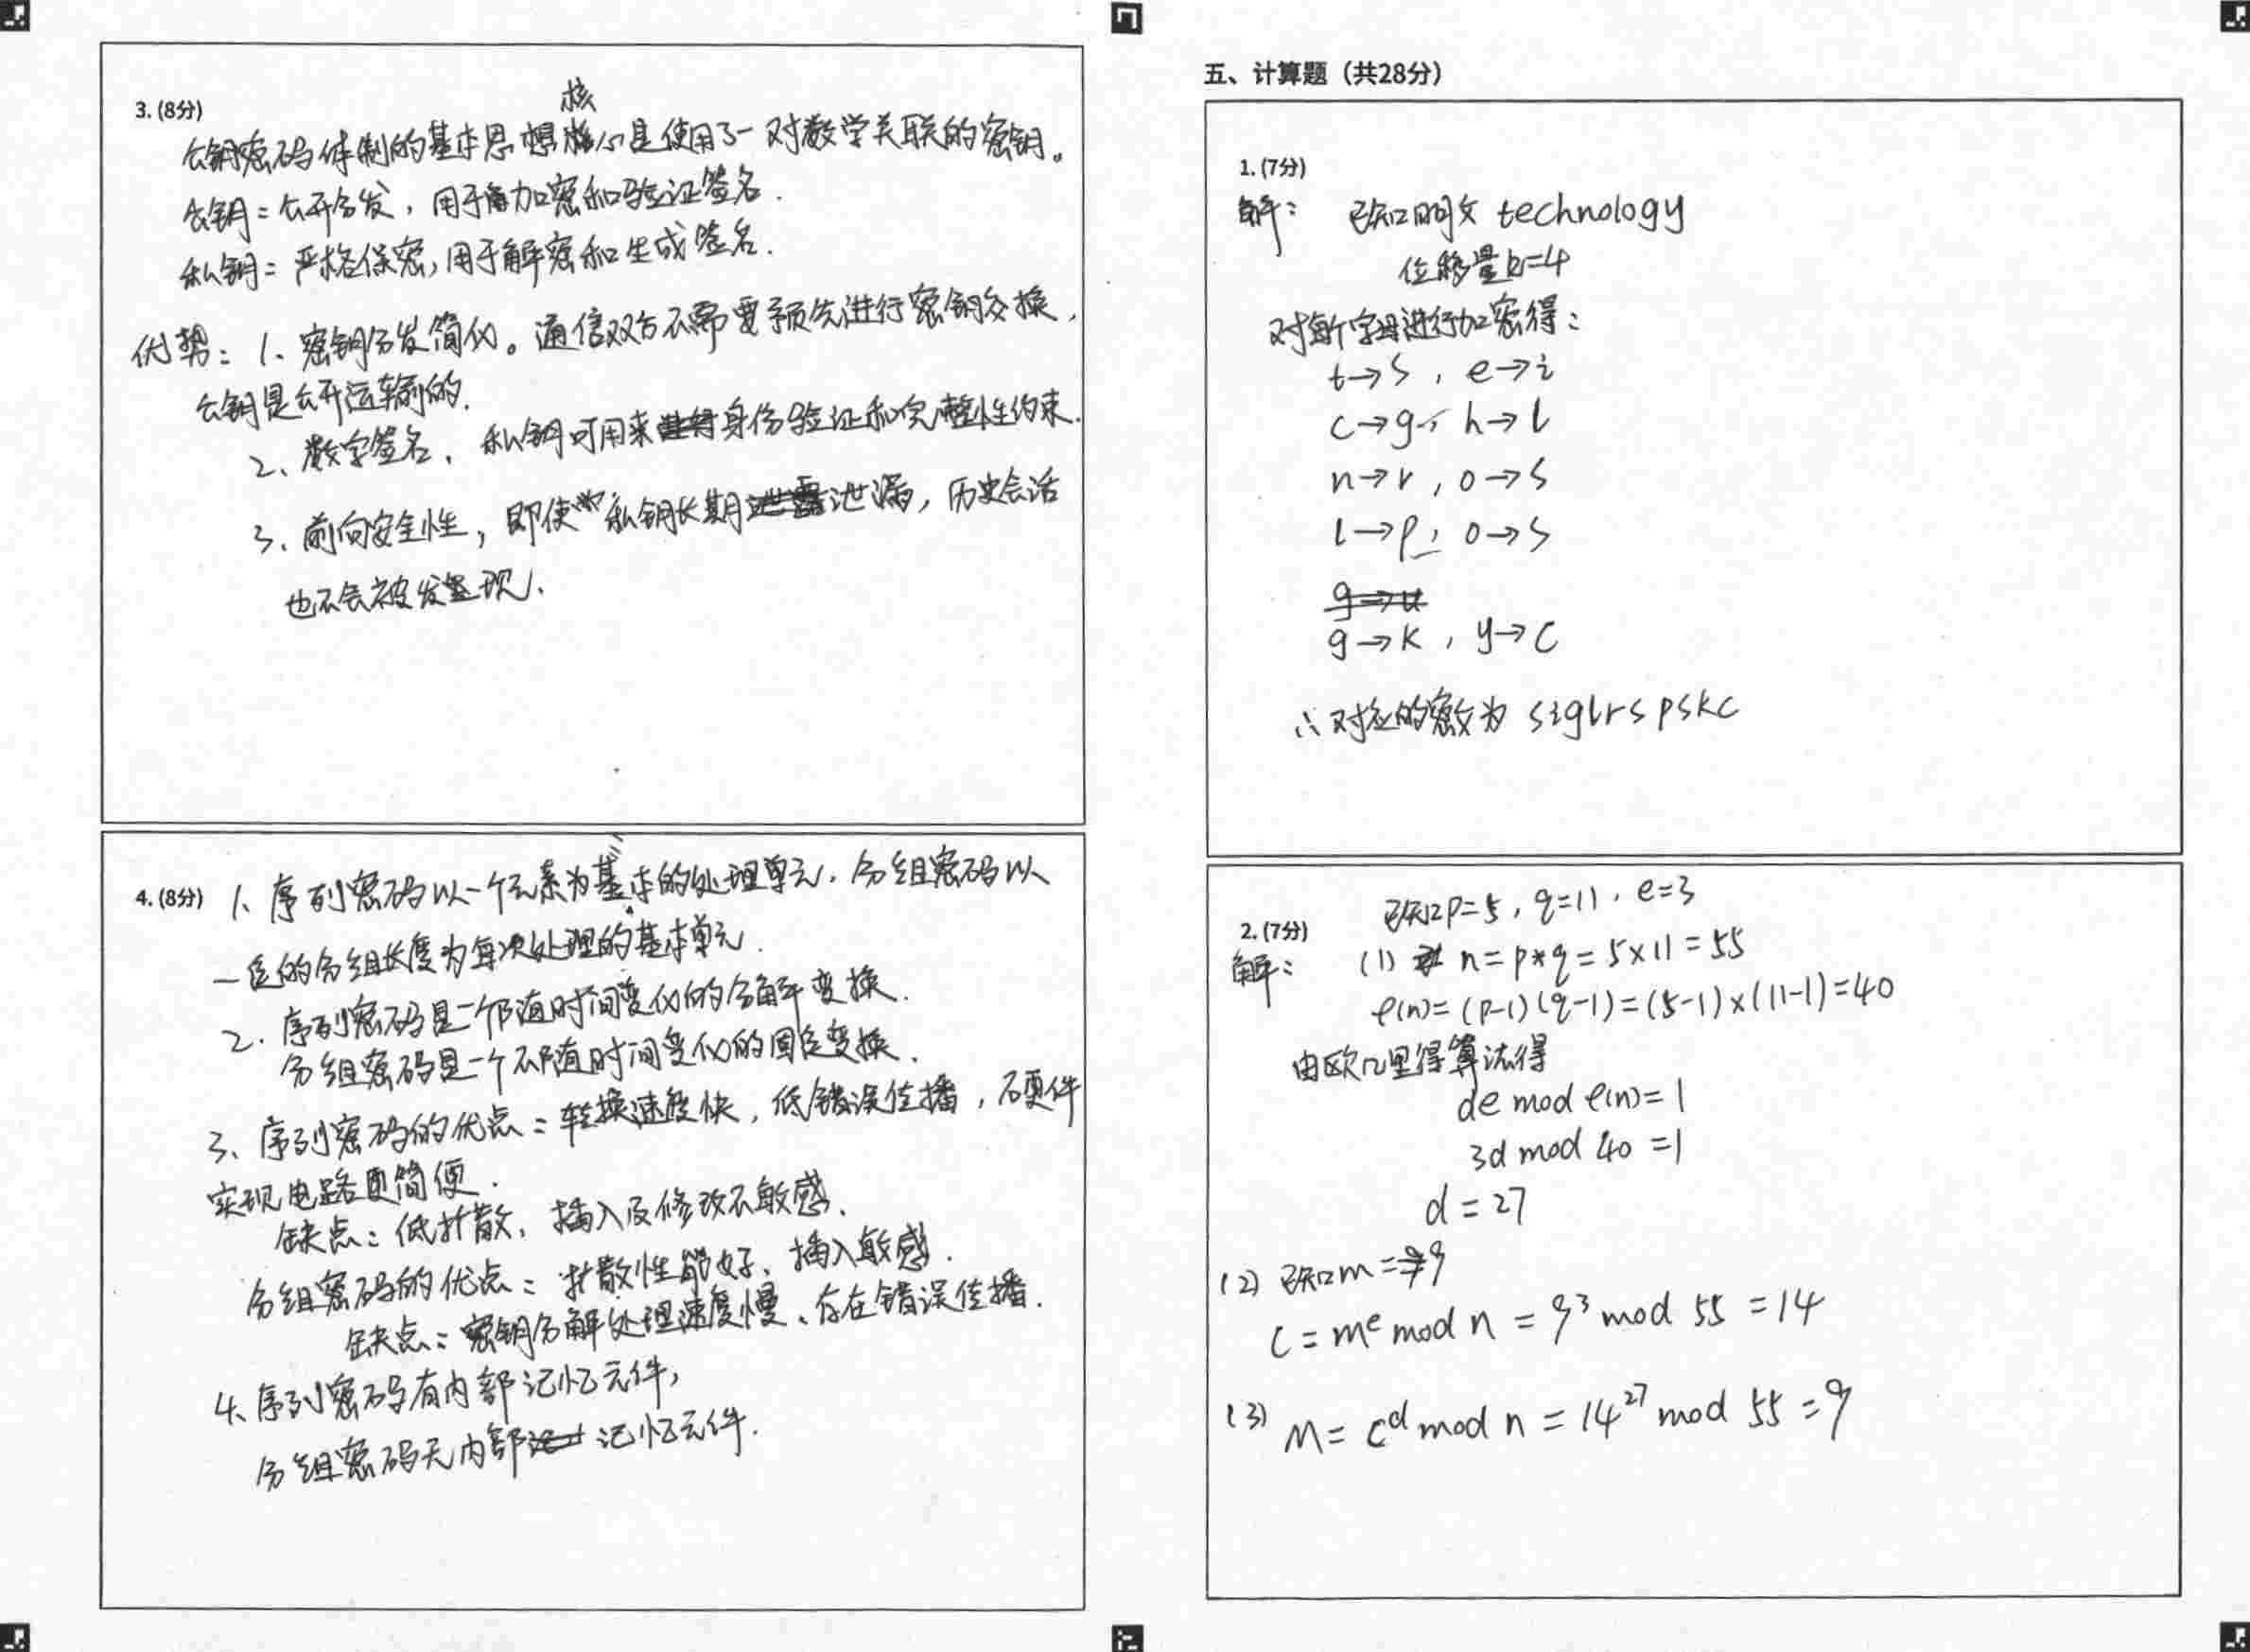 3. (8分)
公钥密码体制的基本思想核心是使用了一对数学关联的密钥。
公钥：公开分发，用于加密和验证签名.
私钥：严格保密，用于解密和生成签名.
优势：1、密钥分发简化。通信双方不需要预先进行密钥交换，
公钥是公开运输的.
2、数字签名、私钥可用来身份验证和完整性约束.
3、前向安全性，即使私钥长期泄漏，历史会话
也不会被发现.
4. (8分) 1、序列密码以一个元素为基本的处理单元，分组密码以
一定的分组长度为每次处理的基本单元.
2. 序列密码是一个随时间变化的分解变换.
分组密码是一个不随时间变化的固定变换.
3、序列密码的优点：转换速度快，低错误传播，硬件
实现电路更简便.
缺点：低扩散，插入及修改不敏感.
分组密码的优点：扩散性能好、插入敏感.
缺点：密钥分解处理速度慢、存在错误传播.
4、序列密码有内部记忆元件，
分组密码无内部记忆元件.
五、计算题（共28分）
1. (7分)
解： 已知明文 technology
位移量k=4
对每个字母进行加密得：
t→s , e→i
c→g , h→l
n→r , o→s
l→p , o→s
g→u
g→k , y→c
∴对应的密文为 siglrspskc
2. (7分)
解： 已知p=5, q=11, e=3
(1) n=p*q=5×11=55
φ(n)=(p-1)(q-1)=(5-1)×(11-1)=40
由欧几里得算法得
de mod φ(n)=1
3d mod 40 =1
d=27
(2) 已知m=9
C=mᵉ mod n = 9³ mod 55 =14
(3) M= cᵈ mod n = 14²⁷ mod 55 =9